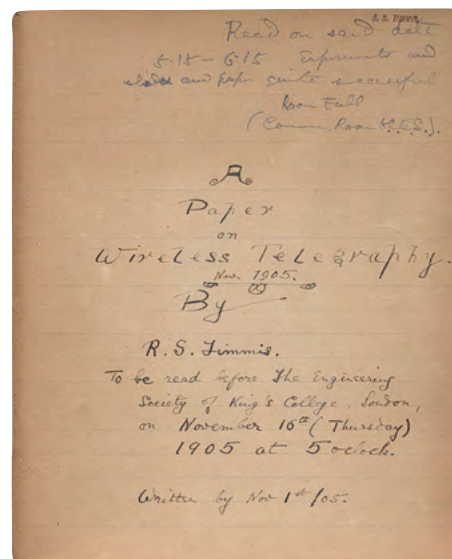 R. S. TIMMIS.
Read on said date
5.15 – 6.15 Experiments and
slides and paper quite successful
Room Full
(Common Room K.C.S.).
A
Paper
on
Wireless Telegraphy.
Nov. 1905.
By
R. S. Timmis.
To be read before The Engineering
Society of King's College, London,
on November 16th (Thursday)
1905 at 5 oclock.
Written by Nov 1st/05.